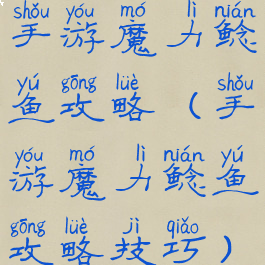 shǒu yóu mó lì nián
手游魔力鲶
yú gōng lüè shǒu
鱼攻略（手
yóu mó lì nián yú
游魔力鲶鱼
gōng lüè jì qiǎo
攻略技巧）